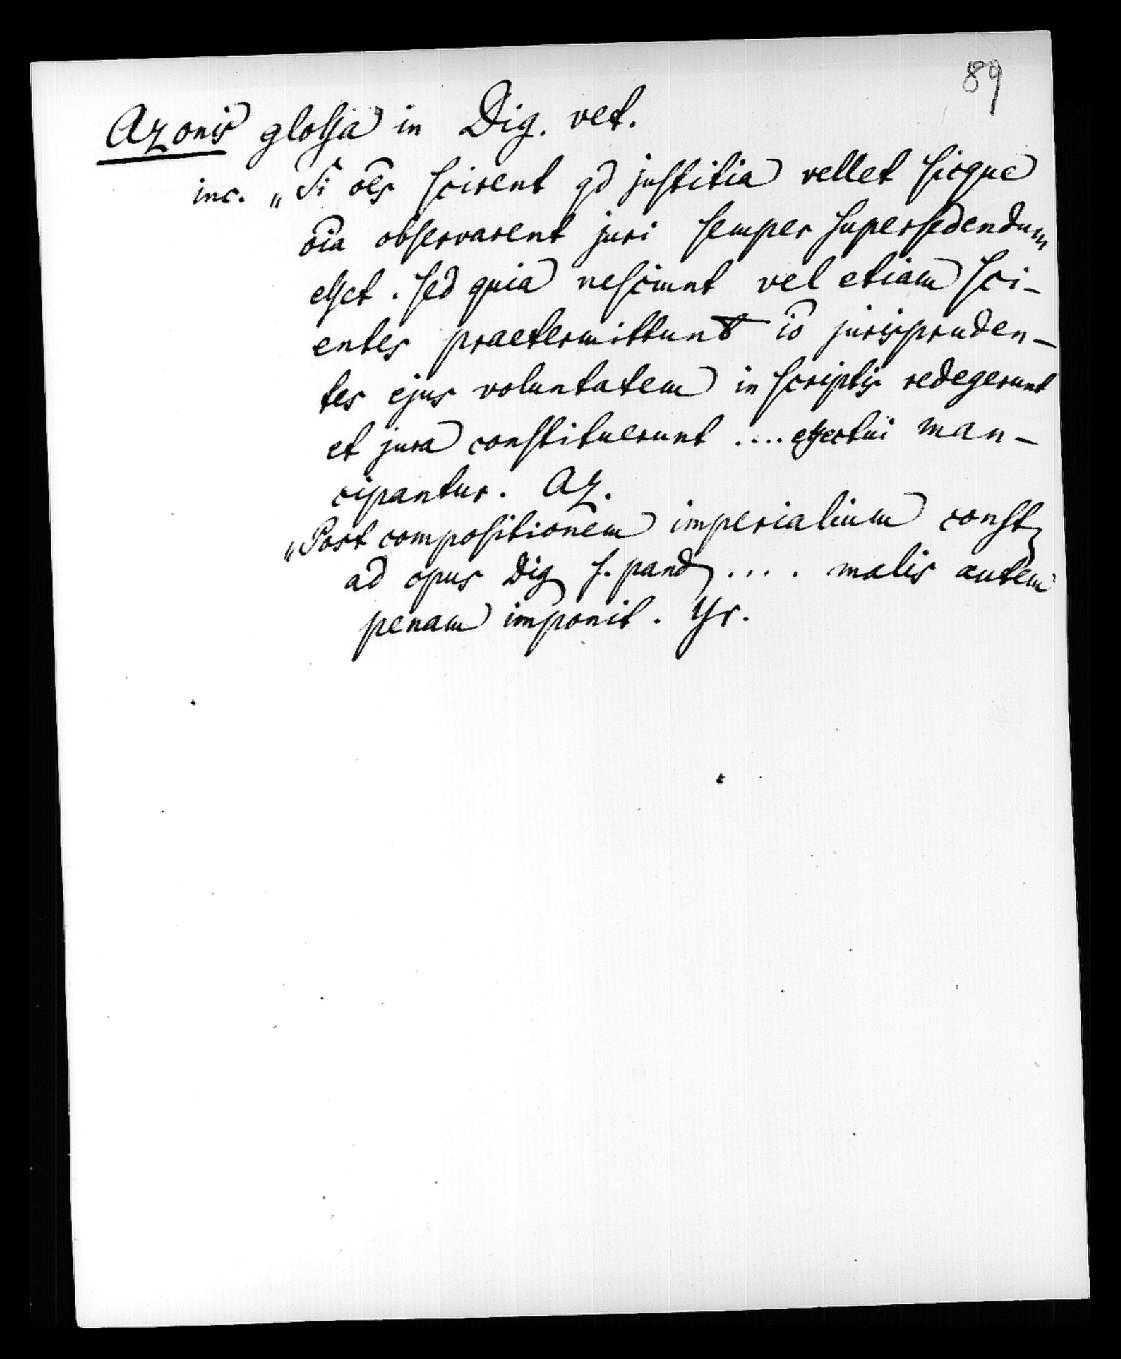 89
Azonis glossa in Dig. vet.
inc. „Si ões scirent qd justitia vellet sicque
õia observarent juri semper supersedendum
esset. sed quia nesciunt vel etiam sci-
entes praetermittunt iõ jurispruden-
tes ejus voluntatem in scriptis redegerunt
et jura constituerunt .... effectui man-
cipantur. Az.
„Post compositionem imperialium const
ad opus Dig s. pand .... malis autem
penam imponit. Yr.